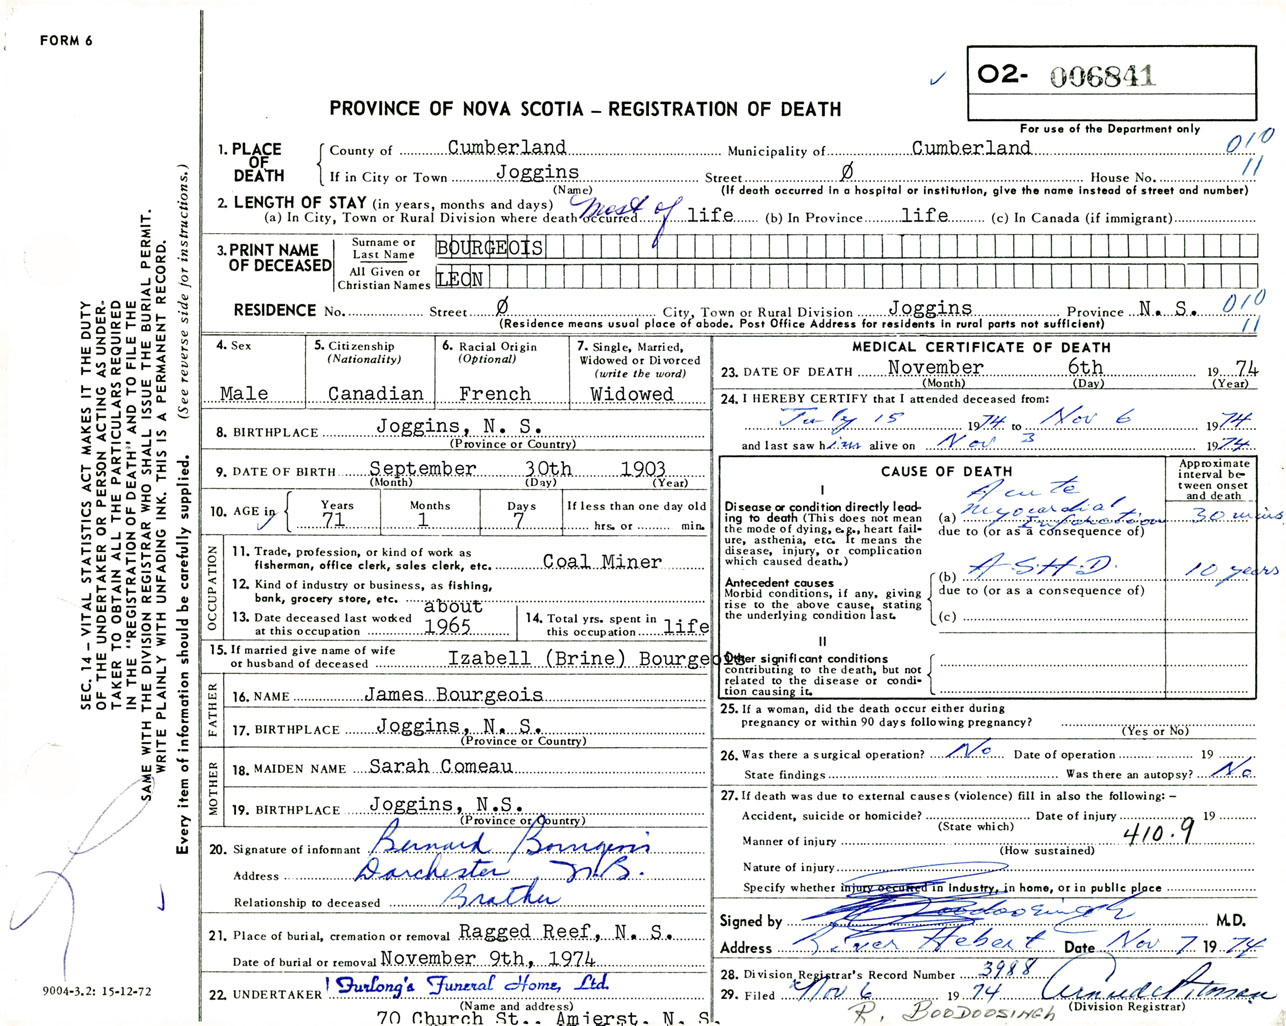 FORM 6
O2- 006841
PROVINCE OF NOVA SCOTIA – REGISTRATION OF DEATH
For use of the Department only
1. PLACE OF DEATH
County of Cumberland Municipality of Cumberland 010
If in City or Town Joggins Street Ø House No. 11
(Name) (If death occurred in a hospital or institution, give the name instead of street and number)
2. LENGTH OF STAY (in years, months and days)
(a) In City, Town or Rural Division where death occurred most of life (b) In Province life (c) In Canada (if immigrant)
3. PRINT NAME OF DECEASED
Surname or Last Name BOURGEOIS
All Given or Christian Names LEON
RESIDENCE No. Street Ø City, Town or Rural Division Joggins Province N. S. 010
(Residence means usual place of abode. Post Office Address for residents in rural parts not sufficient) 11
4. Sex Male
5. Citizenship (Nationality) Canadian
6. Racial Origin (Optional) French
7. Single, Married, Widowed or Divorced (write the word) Widowed
8. BIRTHPLACE Joggins, N. S.
(Province or Country)
9. DATE OF BIRTH September 30th 1903
(Month) (Day) (Year)
10. AGE in Years 71 Months 1 Days 7 If less than one day old hrs. or min.
OCCUPATION
11. Trade, profession, or kind of work as fisherman, office clerk, sales clerk, etc. Coal Miner
12. Kind of industry or business, as fishing, bank, grocery store, etc.
13. Date deceased last worked at this occupation about 1965
14. Total yrs. spent in this occupation life
15. If married give name of wife or husband of deceased Izabell (Brine) Bourgeois
FATHER
16. NAME James Bourgeois
17. BIRTHPLACE Joggins, N. S.
(Province or Country)
MOTHER
18. MAIDEN NAME Sarah Comeau
19. BIRTHPLACE Joggins, N.S.
(Province or Country)
20. Signature of informant Bernard Bourgeois
Address Dorchester N.B.
Relationship to deceased Brother
21. Place of burial, cremation or removal Ragged Reef, N. S.
Date of burial or removal November 9th, 1974
22. UNDERTAKER Furlong's Funeral Home, Ltd.
(Name and address)
70 Church St., Amherst, N. S.
MEDICAL CERTIFICATE OF DEATH
23. DATE OF DEATH November 6th 1974
(Month) (Day) (Year)
24. I HEREBY CERTIFY that I attended deceased from:
July 15 1974 to Nov 6 1974
and last saw him alive on Nov 3 1974
CAUSE OF DEATH
Approximate interval between onset and death
I
Disease or condition directly leading to death (This does not mean the mode of dying, e.g., heart failure, asthenia, etc. It means the disease, injury, or complication which caused death.)
(a) Acute Myocardial Infarction 30 mins
due to (or as a consequence of)
Antecedent causes
Morbid conditions, if any, giving rise to the above cause, stating the underlying condition last.
(b) A.S.H.D. 10 years
due to (or as a consequence of)
(c)
II
Other significant conditions
contributing to the death, but not related to the disease or condition causing it.
25. If a woman, did the death occur either during pregnancy or within 90 days following pregnancy?
(Yes or No)
26. Was there a surgical operation? No Date of operation 19
State findings Was there an autopsy? No
27. If death was due to external causes (violence) fill in also the following: –
Accident, suicide or homicide? Date of injury 19
(State which)
Manner of injury 410.9
(How sustained)
Nature of injury
Specify whether injury occurred in Industry, in home, or in public place
Signed by Boodoosingh M.D.
Address River Hebert Date Nov 7 1974
28. Division Registrar's Record Number 3988
29. Filed Nov 6 1974
(Division Registrar)
R. BOODOOSINGH
SEC. 14 – VITAL STATISTICS ACT MAKES IT THE DUTY
OF THE UNDERTAKER OR PERSON ACTING AS UNDER-
TAKER TO OBTAIN ALL THE PARTICULARS REQUIRED
IN THE "REGISTRATION OF DEATH" AND TO FILE THE
SAME WITH THE DIVISION REGISTRAR WHO SHALL ISSUE THE BURIAL PERMIT.
WRITE PLAINLY WITH UNFADING INK. THIS IS A PERMANENT RECORD.
Every item of information should be carefully supplied. (See reverse side for instructions.)
9004-3.2: 15-12-72